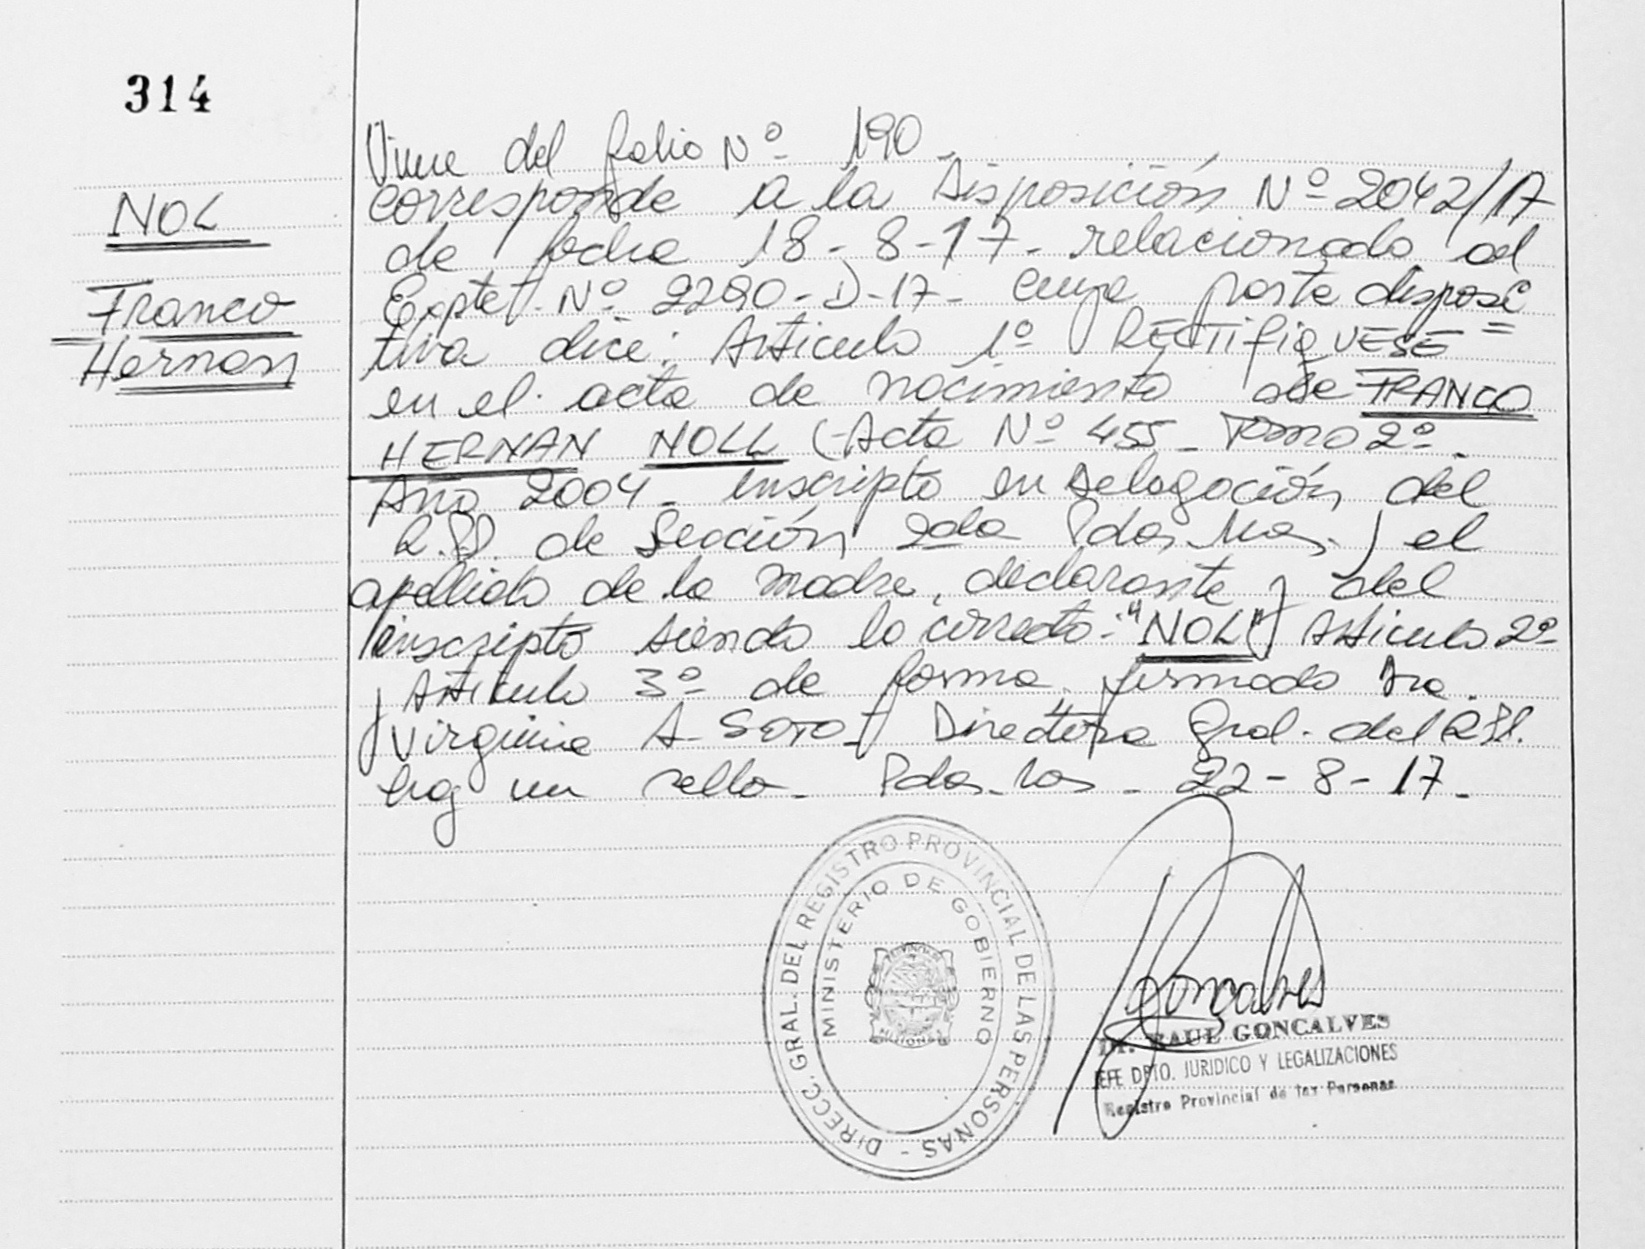 314
NOL
Franco
Hernan
Viene del folio Nº 190-
corresponde a la Disposición Nº 2042/17
de fecha 18-8-17- relacionado al
Expte. Nº 2290-D-17- cuya parte disposi
tiva dice: Articulo 1º RECTifiQUESE
en el acta de nacimiento de FRANCO
HERNAN NOLL (-Acta Nº 455- Tomo 2º-
Año 2004- inscripto en Delegación del
R.P. de Sección 2da Pdas, Mnes.) el
apellido de la madre, declarante y del
inscripto siendo lo correcto: "NOL" Articulo 2º
y Articulo 3º de forma, firmado Dra.
Virginia A- SOTO- Directora Gral. del RPP.
hay un sello- Pdas- - 22-8-17-
DIRECC. GRAL. DEL REGISTRO PROVINCIAL DE LAS PERSONAS -
MINISTERIO DE GOBIERNO
PROVINCIA
MISIONES
Goncalves
Dr. RAUL GONCALVES
JEFE DPTO. JURIDICO Y LEGALIZACIONES
Registro Provincial de las Personas